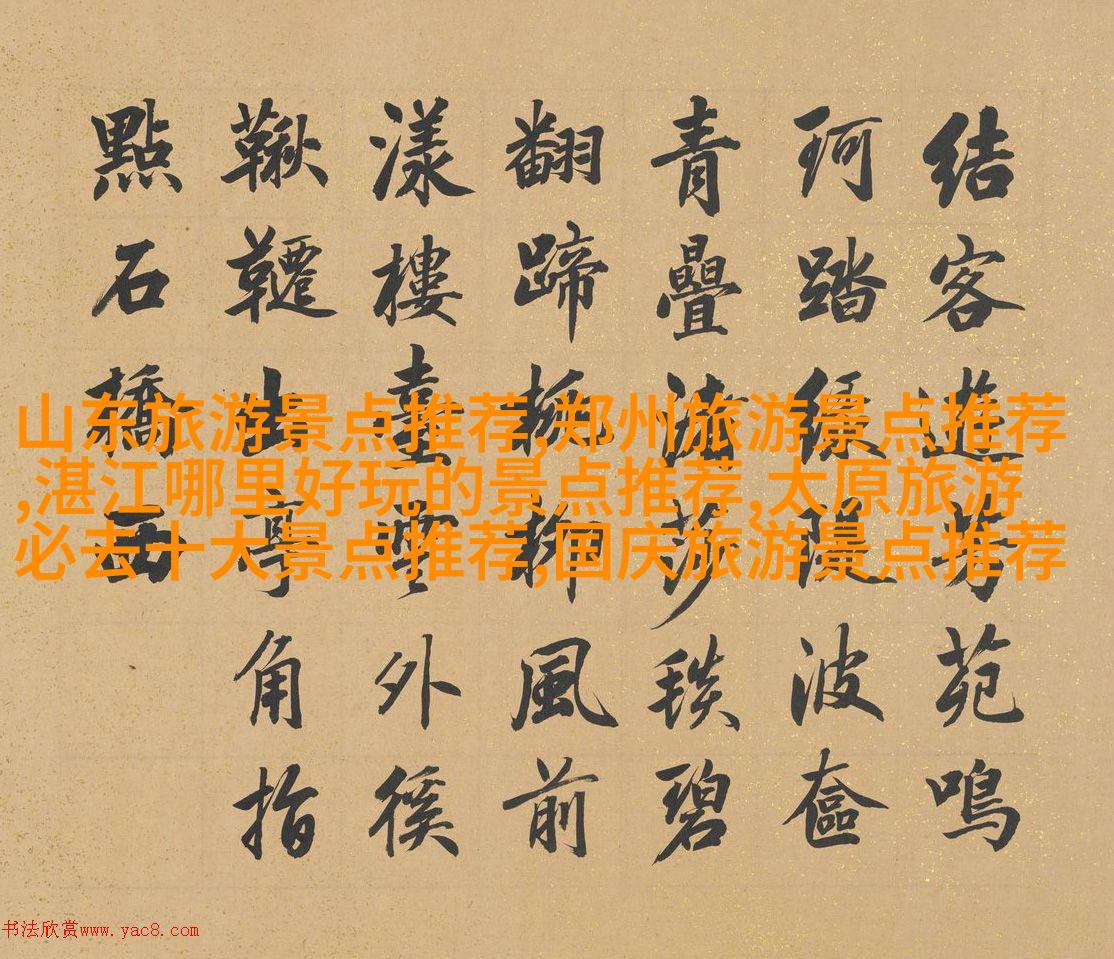 結客遊芳苑鳴
珂踏堤波奩
青疊漪莎毯碧
翻蹄柳風前
漾樓臺外徯
鞦韆出亭角指
點石橋西
山东旅游景点推荐,郑州旅游景点推荐
,湛江哪里好玩的景点推荐,太原旅游
必去十大景点推荐,国庆旅游景点推荐
书法欣赏www.yac8.com